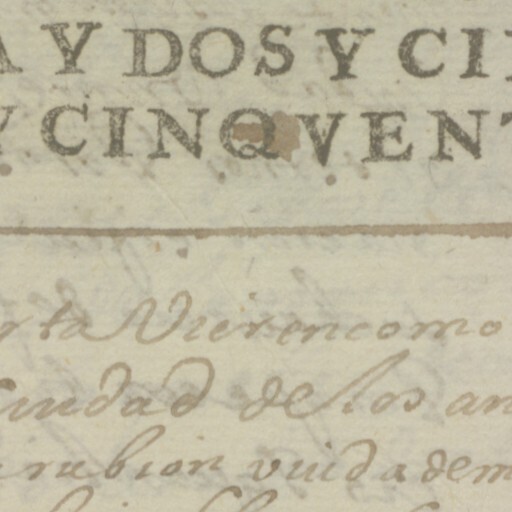 A Y DOS Y CI
Y CINQVENT
rta Vieren como
Ciudad de los an
irubion viuda dem